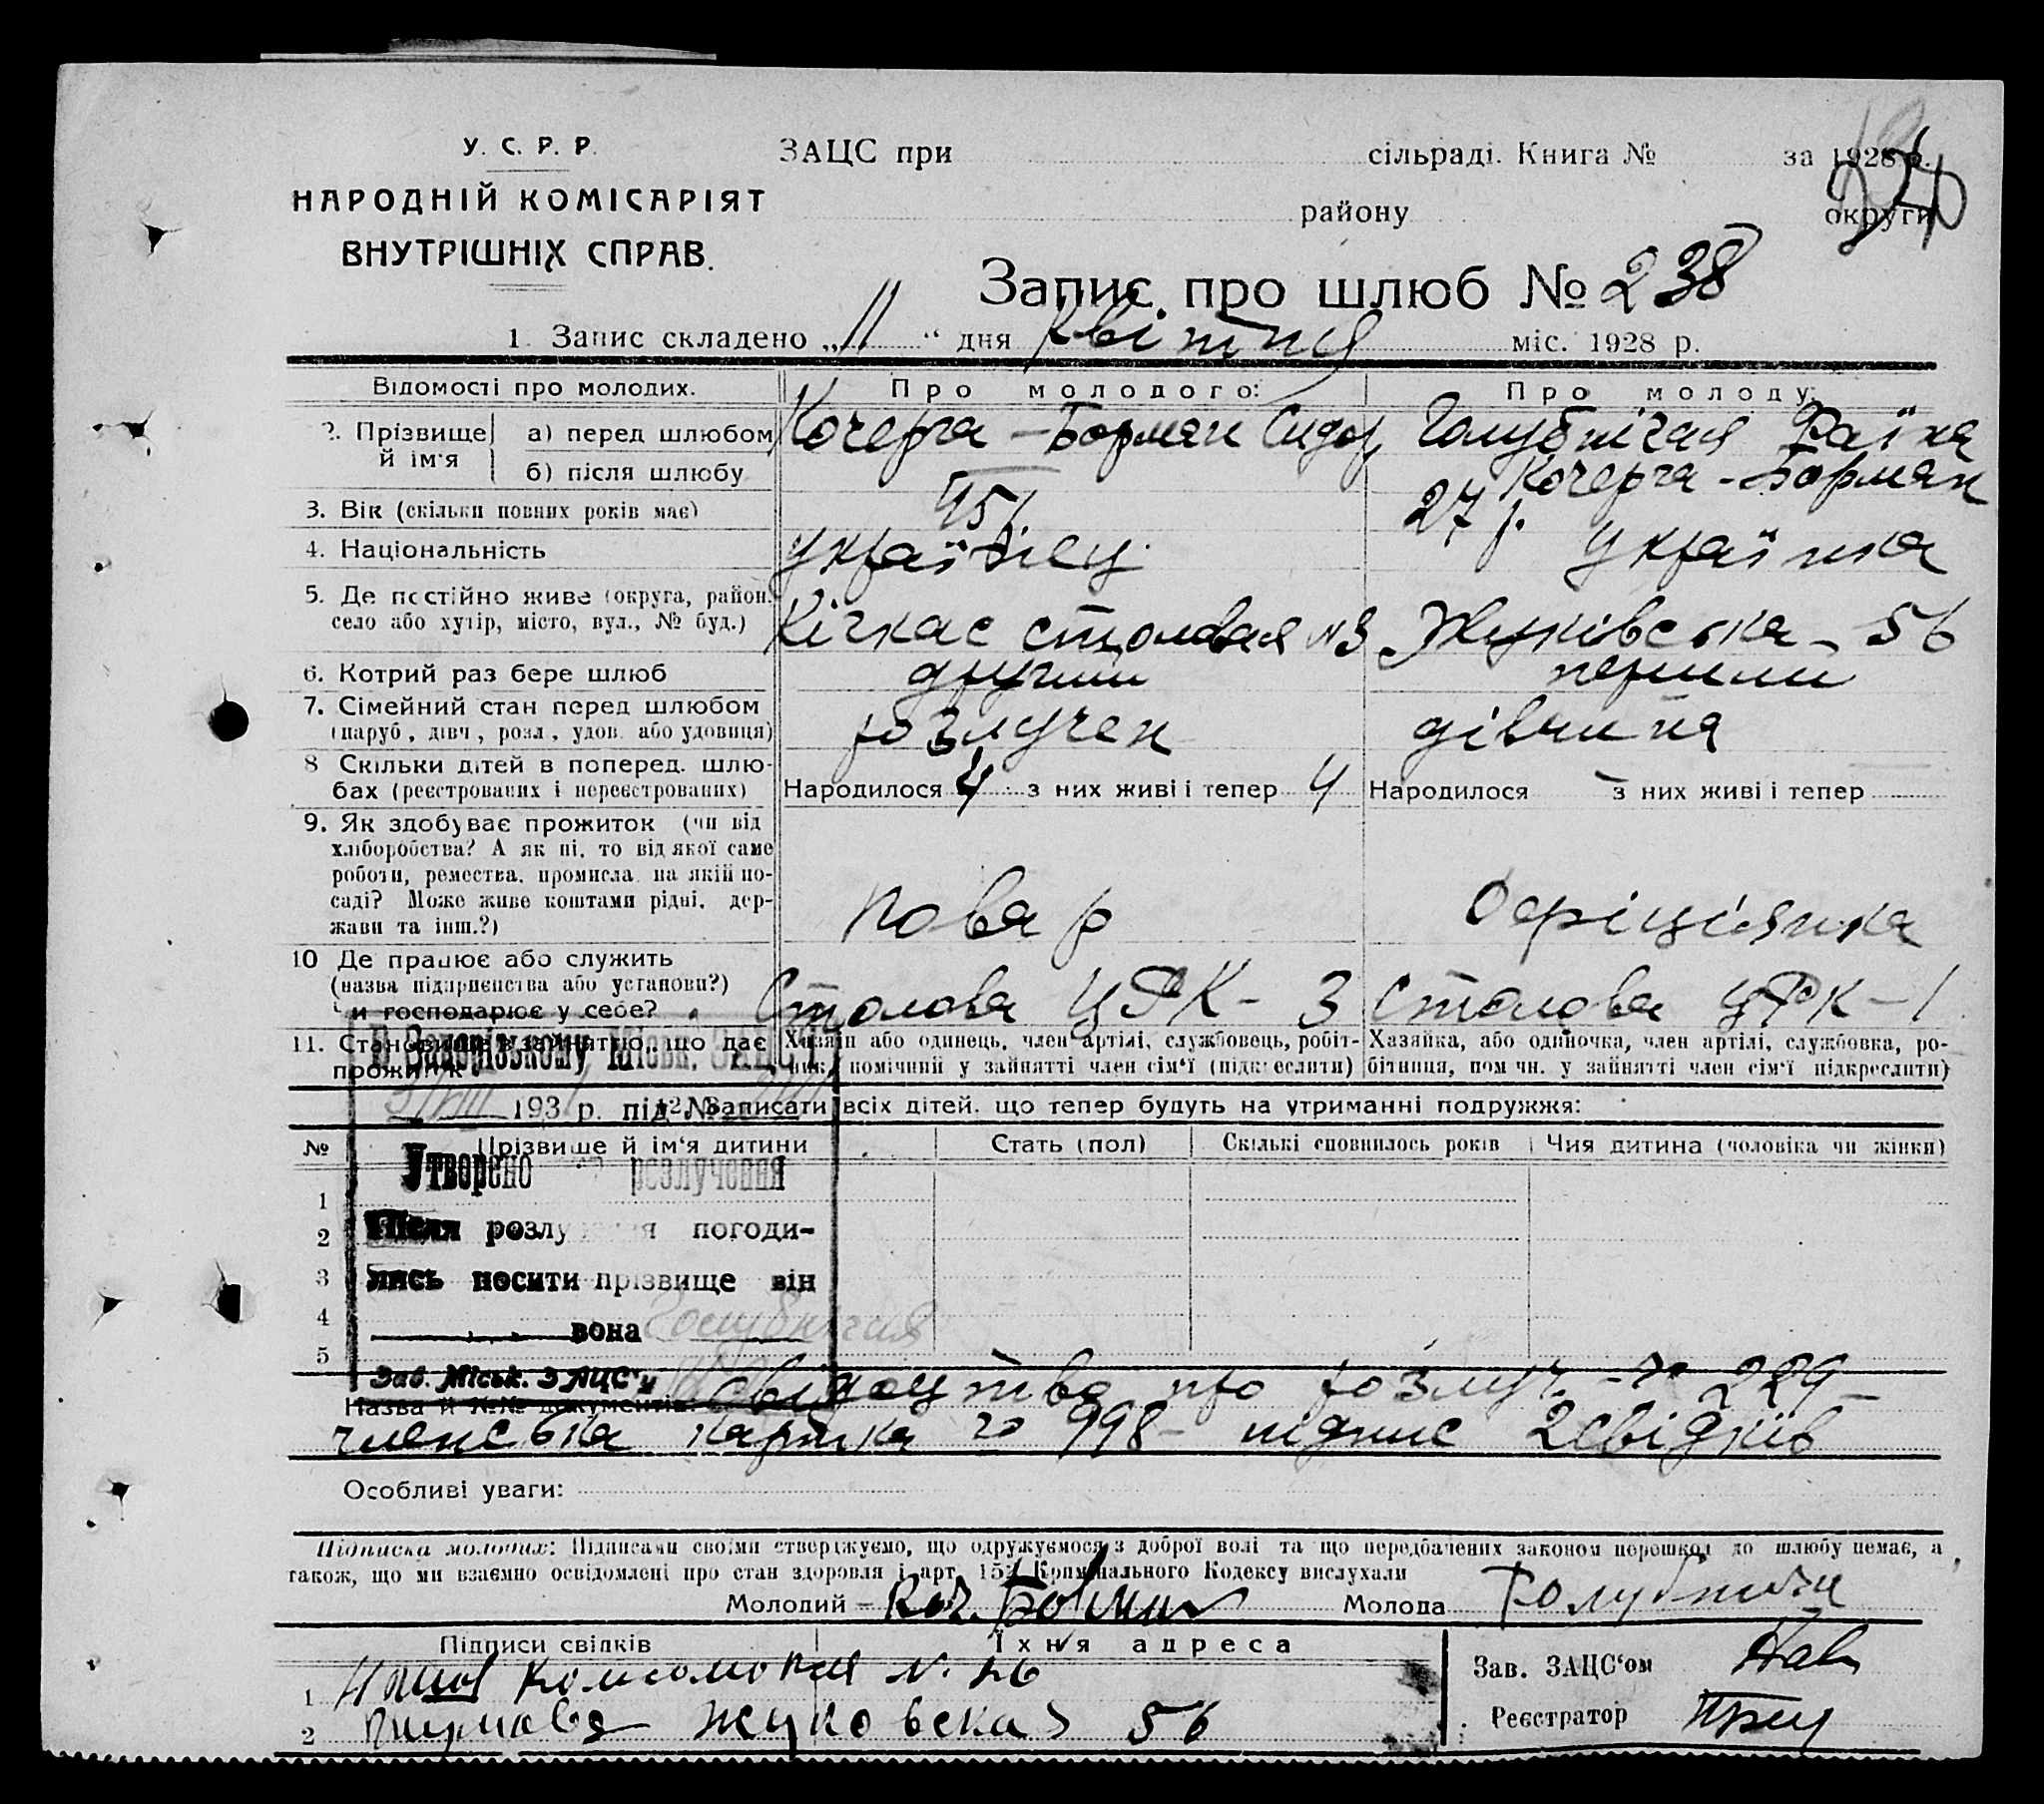 У. С. Р. Р.
НАРОДНІЙ КОМІСАРІЯТ
ВНУТРІШНІХ СПРАВ.
ЗАЦС при сільраді. Книга № за 1928 р.
району округи
Запис про шлюб № 238
1. Запис складено „11“ дня квітня міс. 1928 р.
Відомості про молодих. Про молодого: Про молоду:
2. Прізвище й ім'я а) перед шлюбом Кочерга-Борман Сидор Голубнічая Раїна
б) після шлюбу Кочерга-Борман
3. Вік (скільки повних років має) 45 27 р.
4. Національність українец українка
5. Де постійно живе (округа, район, Кічкас столовая №3 Жуківська - 56
село або хутір, місто, вул., № буд.)
6. Котрий раз бере шлюб другий перший
7. Сімейний стан перед шлюбом розлучен дівчина
(паруб., дівч., розл., удов. або удовиця)
8 Скільки дітей в поперед. шлю-
бах (реєстрованих і нереєстрованих) Народилося 4 з них живі і тепер 4 Народилося — з них живі і тепер
9. Як здобуває прожиток (чи від
хліборобства? А як ні, то від якої саме
роботи, ремества, промисла, на якій по-
саді? Може живе коштами рідні, дер-
жави та інш.?) повар офіціянка
10 Де працює або служить
(назва підприємства або установи?) Столова ЦРК - 3 Столова ЦРК - 1
Чи господарює у себе?
11. Становище в зайнятю, що дає Хазяїн або одинець, член артілі, службовець, робіт- Хазяйка, або одиночка, член артілі, службовка, ро-
прожиток ник, помічний у зайнятті член сім'ї (підкреслити) бітниця, помічн. у зайнятті член сім'ї підкреслити)
В Запорізькому Міськ. ЗАЦС'і
193 р. під №
12. Записати всіх дітей, що тепер будуть на утриманні подружжя:
№ Прізвище й ім'я дитини Стать (пол) Скількі сповнилось років Чия дитина (чоловіка чи жінки)
1
2
3
4
5
Утворено розлучення
Після розлучення погоди-
лись носити прізвище він
вона Голубничая
Зав. Міськ. ЗАЦС'у
Назва й №№ документів: Свідоцтво про розлуч. № 229 -
членська картка № 998 - підпис 2 свідків
Особливі уваги:
Підписка молодих: Підписами своїми стверджуємо, що одружуємося з доброї волі та що передбачених законом перешкод до шлюбу немає, а
також, що ми взаємно освідомлені про стан здоровля і арт. 154 Кримінального Кодексу вислухали
Молодий Коч. Борман Молода Голубнича
Підписи свідків Їхня адреса
1 Комсомольская №. 26
2 Жуковская 56
Зав. ЗАЦС'ом
Реєстратор